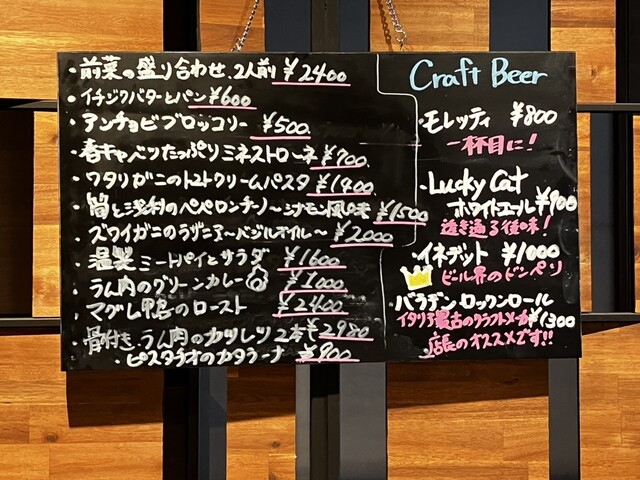 ・前菜の盛り合わせ 2人前 ¥2400
・イチジクバターとパン ¥600
・アンチョビブロッコリー ¥500
・春キャベツたっぷりミネストローネ ¥700
・ワタリガニのトマトクリームパスタ ¥1400
のペペロンチーノ〜シナモン風味 ¥1500
・ズワイガニのラザニア〜バジルオイル〜 ¥2000
・温製ミートパイとサラダ ¥1600
・ラム肉のグリーンカレー ¥1000
・マグレ鴨のロースト ¥2400
・骨付きラム肉のカツレツ 2本 ¥2980
ピスタチオのカタラーナ ¥900
Craft Beer
・モレッティ ¥800
一杯目に!
・Lucky Cat
ホワイトエール ¥900
透き通る後味!
・イネデット ¥1000
ビール界のドンペリ
・バラデン ロックンロール
イタリア最古のクラフトメーカー ¥1300
店長のオススメです!!